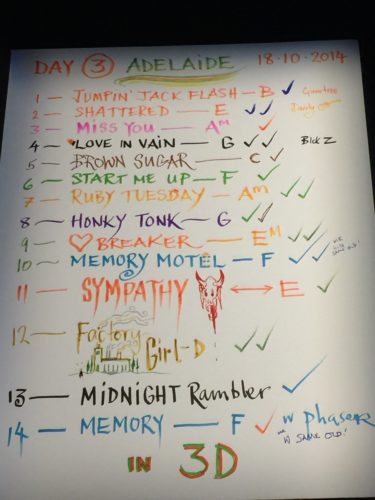 DAY 3 ADELAIDE 18·10·2014
1 — JUMPIN' JACK FLASH — B ✓
2 — SHATTERED — E ✓✓
3 — MISS YOU — Am ✓
4 — LOVE IN VAIN — G ✓✓ Blck Z
5 — BROWN SUGAR — C ✓
6 — START ME UP — F ✓
7 — RUBY TUESDAY — Am ✓
8 — HONKY TONK — G ✓✓
9 — ♡ BREAKER — Em ✓✓
10 — MEMORY MOTEL — F ✓✓
11 — SYMPATHY ↔ E ✓
12 — Factory Girl - D ✓✓
13 — MIDNIGHT Rambler ✓
14 — MEMORY — F ✓ w phaser
W SAME OLD!
IN 3D